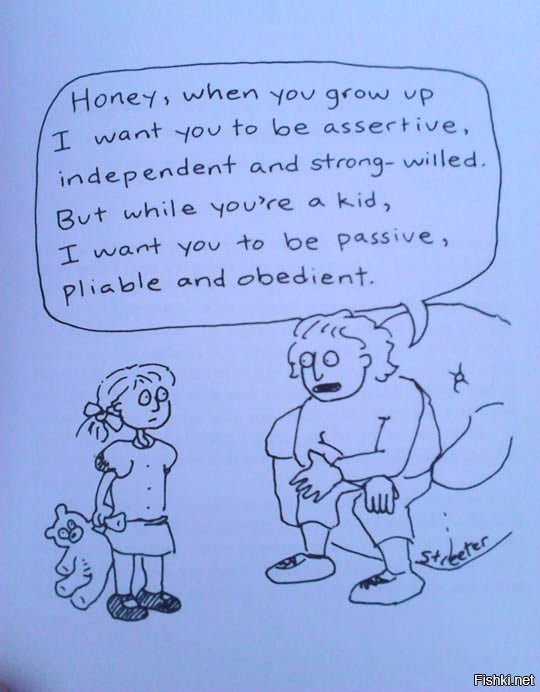 Honey, when you grow up
I want you to be assertive,
independent and strong-willed.
But while you're a kid,
I want you to be passive,
pliable and obedient.
Streeter
Fishki.net